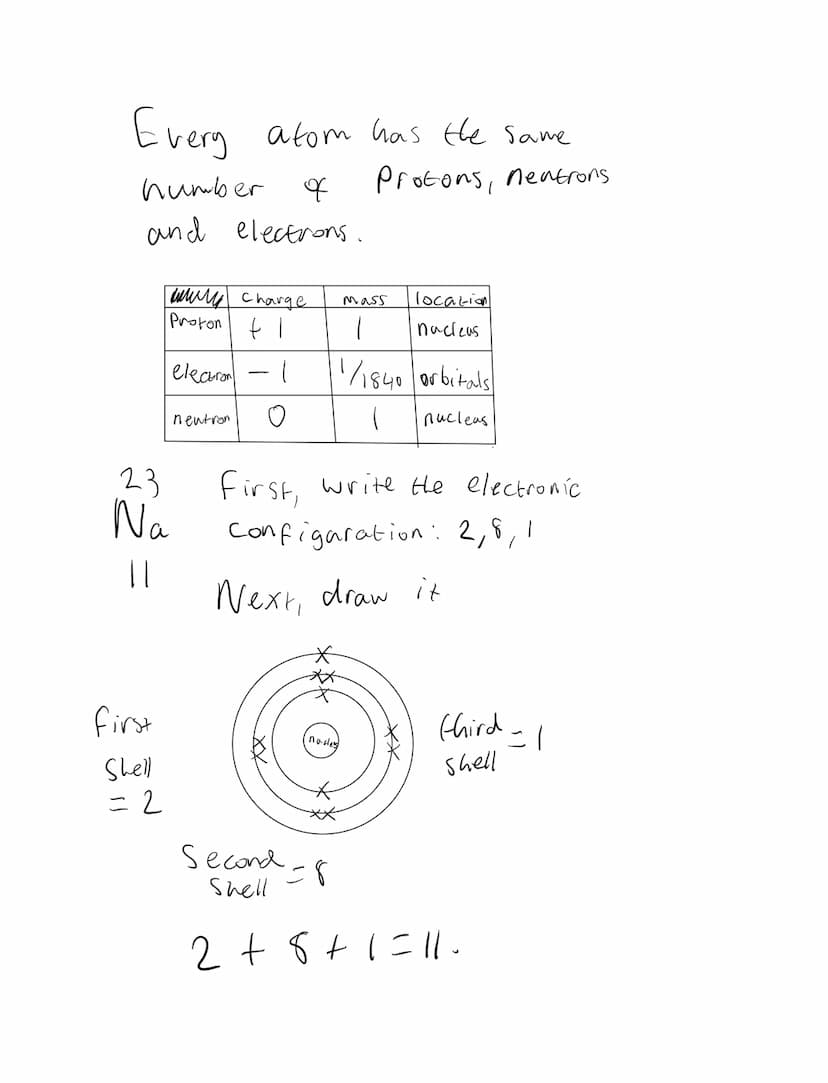 Every atom has the same
number of Protons, neutrons
and electrons.
charge mass location
Proton +1 1 nucleus
electron -1 1/1840 orbitals
neutron 0 1 nucleus
23
Na
11
First, write the electronic
configaration: 2,8,1
Next, draw it
nucleus
First
shell
= 2
third = 1
shell
Second = 8
shell
2 + 8 + 1 = 11.